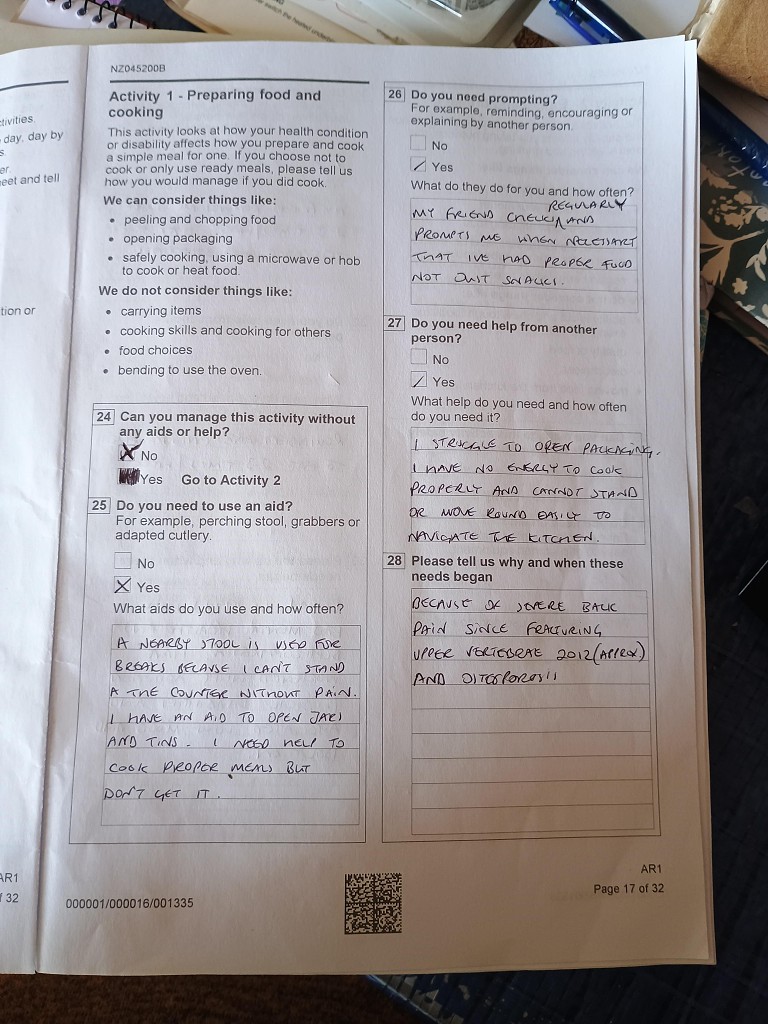 switch the heated
tivities,
day, day by
s.
er
eet and tell
tion or
AR1
f 32
NZ045200B
Activity 1 - Preparing food and
cooking
This activity looks at how your health condition
or disability affects how you prepare and cook
a simple meal for one. If you choose not to
cook or only use ready meals, please tell us
how you would manage if you did cook.
We can consider things like:
• peeling and chopping food
• opening packaging
• safely cooking, using a microwave or hob
to cook or heat food.
We do not consider things like:
• carrying items
• cooking skills and cooking for others
• food choices
• bending to use the oven.
24 Can you manage this activity without
any aids or help?
No
Yes Go to Activity 2
25 Do you need to use an aid?
For example, perching stool, grabbers or
adapted cutlery.
No
Yes
What aids do you use and how often?
A NEARBY STOOL IS USED FOR
BREAKS BECAUSE I CAN'T STAND
A THE COUNTER WITHOUT PAIN.
I HAVE AN AID TO OPEN JARS
AND TINS. I NEED HELP TO
COOK PROPER MEALS BUT
DON'T GET IT.
000001/000016/001335
26 Do you need prompting?
For example, reminding, encouraging or
explaining by another person.
No
Yes
What do they do for you and how often?
REGULARLY
MY FRIEND CHECKS AND
PROMPTS ME WHEN NECESSARY
THAT IVE HAD PROPER FOOD
NOT JUST SNACKS.
27 Do you need help from another
person?
No
Yes
What help do you need and how often
do you need it?
I STRUGGLE TO OPEN PACKAGING.
I HAVE NO ENERGY TO COOK
PROPERLY AND CANNOT STAND
OR MOVE ROUND EASILY TO
NAVIGATE THE KITCHEN.
28 Please tell us why and when these
needs began
BECAUSE OF SEVERE BACK
PAIN SINCE FRACTURING
UPPER VERTEBRAE 2012 (APPROX)
AND OSTEOPOROSIS
AR1
Page 17 of 32